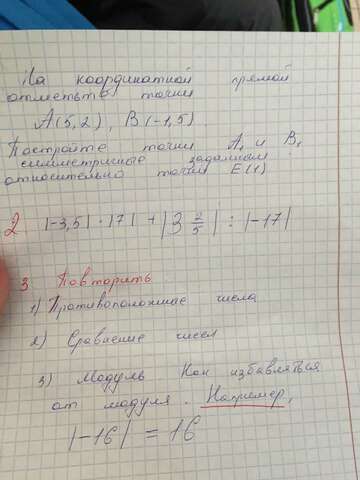 На координатной прямой
отметьте точки
A(5,2), B(-1,5).
Постройте точки A₁ и B₁
симметричные заданным
относительно точки E(1)
2. |-3,5| · |7| + |3 2/5| : |-17|
3 Повторить
1) Противоположные числа
2) Сравнение чисел
3) Модуль Как избавляться
от модуля. Например,
|-16| = 16